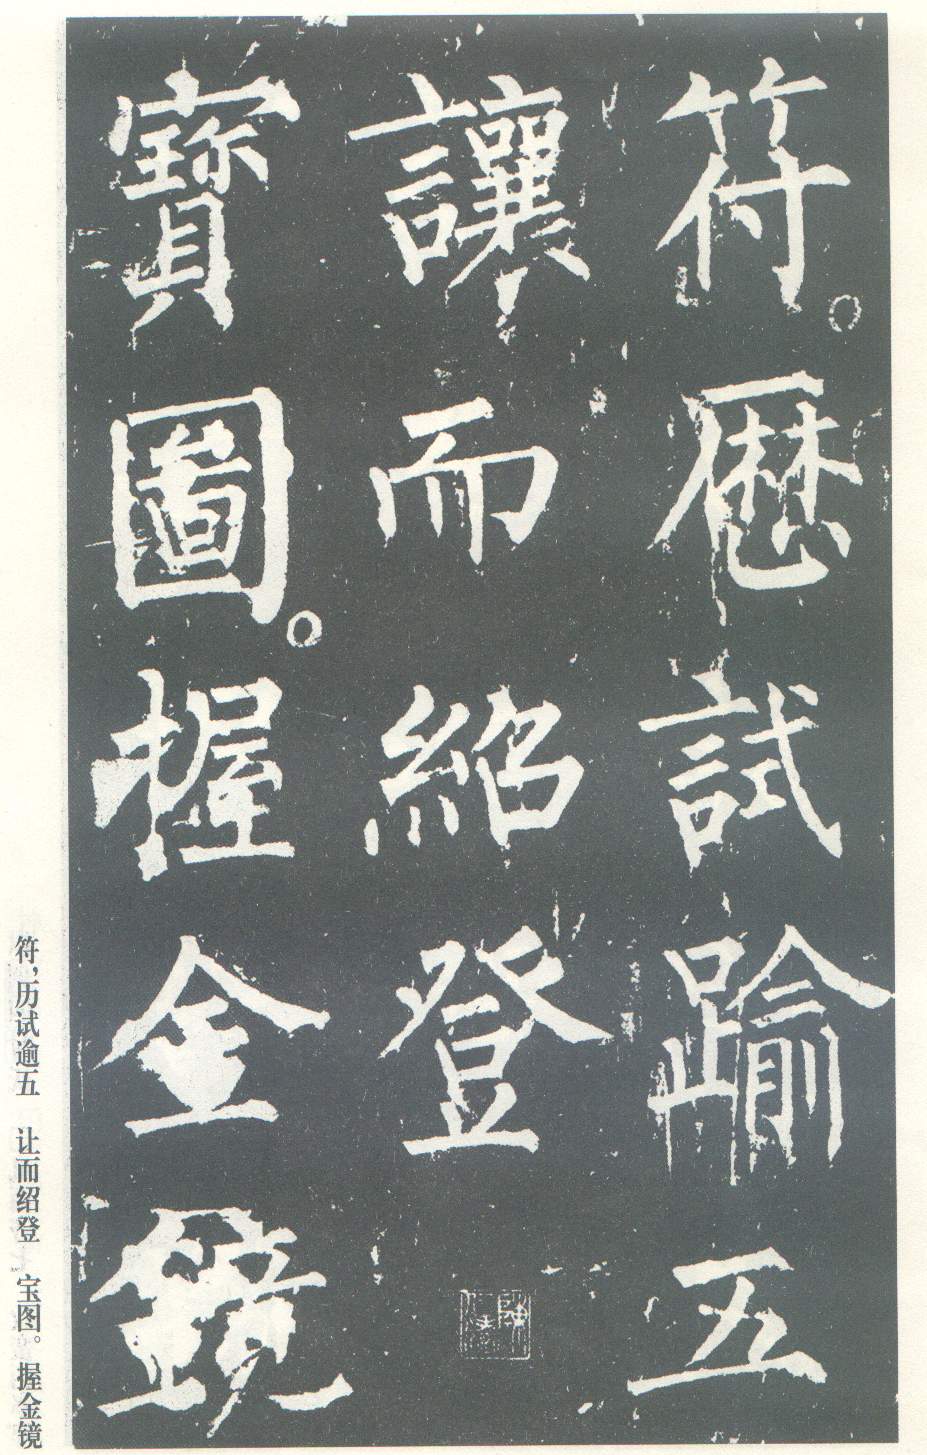 符。歷試踰五
讓而紹登
寶圖。握金鏡
符，历试逾五　让而绍登　宝图。握金镜